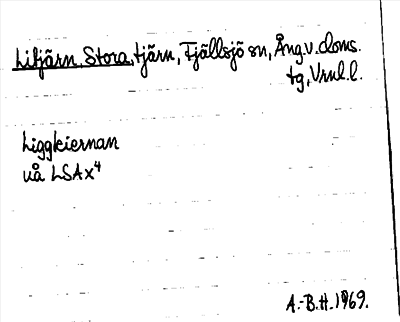 Litjärn, Stora, tjärn, Fjällsjö sn, Ång.v.doms.
tg, Vrnl.l.
Liggkiernan
uå LSAx⁴
A.-B.H. 1969.